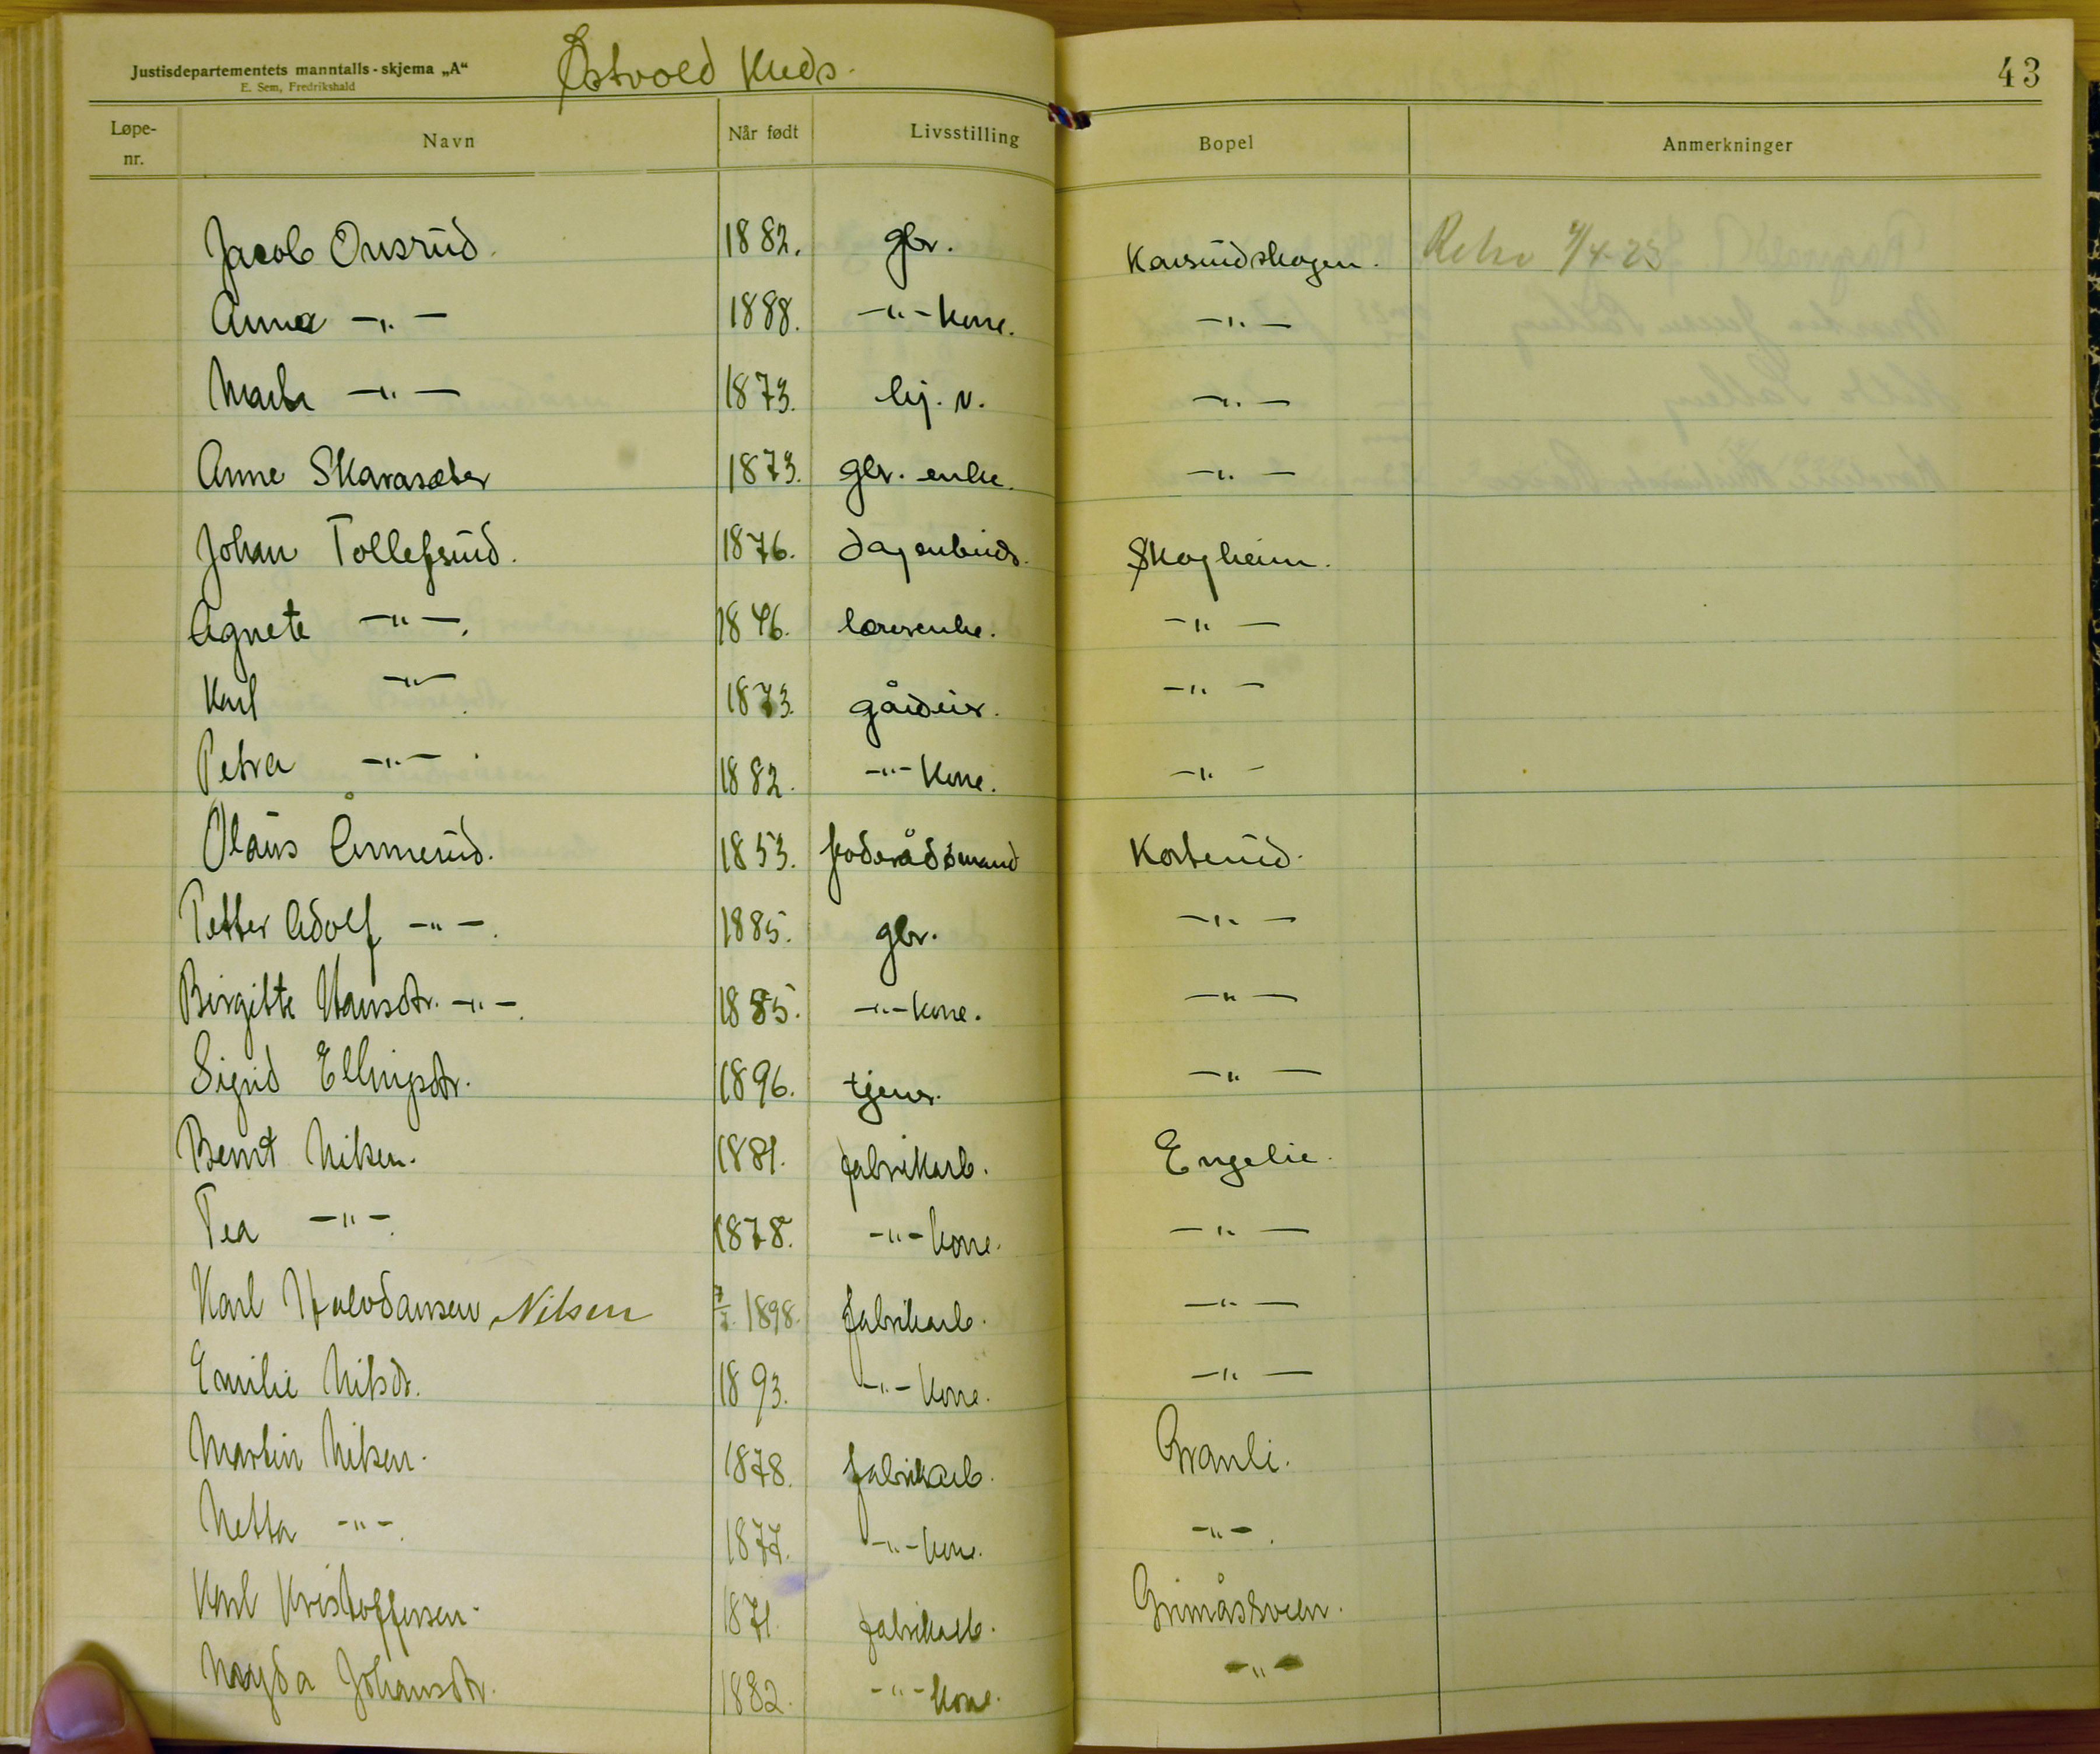 Justisdepartementets manntalls-skjema „A“
E. Sem, Fredrikshald
Østvold Kreds.
43
Løpe-nr. Navn Når født Livsstilling Bopel Anmerkninger
Jacob Onsrud. 1882. gbr. Korsrudskogen.
Anna —"— 1888. —"— kone. —"—
Marte —"— 1873. lej. v. —"—
Anne Skarasæter 1873. gbr. enke. —"—
Johan Tollefsrud. 1876. dagarbeid. Skogheim.
Agnete —"—. 1846. lærerenke. —"—
Karl —"—. 1873. gårdeier. —"—
Petra —"—. 1882. —"— kone. —"—
Olaus Ånnerud. 1853. foderådsmand Korterud.
Petter Adolf —"—. 1885. gbr. —"—
Birgitte Hansdtr. —"—. 1885. —"— kone. —"—
Sigrid Ellingsdtr. 1896. tjener. —"—
Bernt Nilsen. 1881. fabrikarb. Engelie.
Tea —"—. 1878. —"— kone. —"—
Karl Halvdansen Nilsen 1898. fabrikarb. —"—
Emilie Nilsdtr. 1893. —"— kone. —"—
Martin Nilsen. 1878. fabrikarb. Granli.
Netta —"—. 1877. —"— kone. —"—.
Karl Kristoffersen. 1871. fabrikarb. Grimåsbroen.
Magda Johansdtr. 1882. —"— kone. —"—